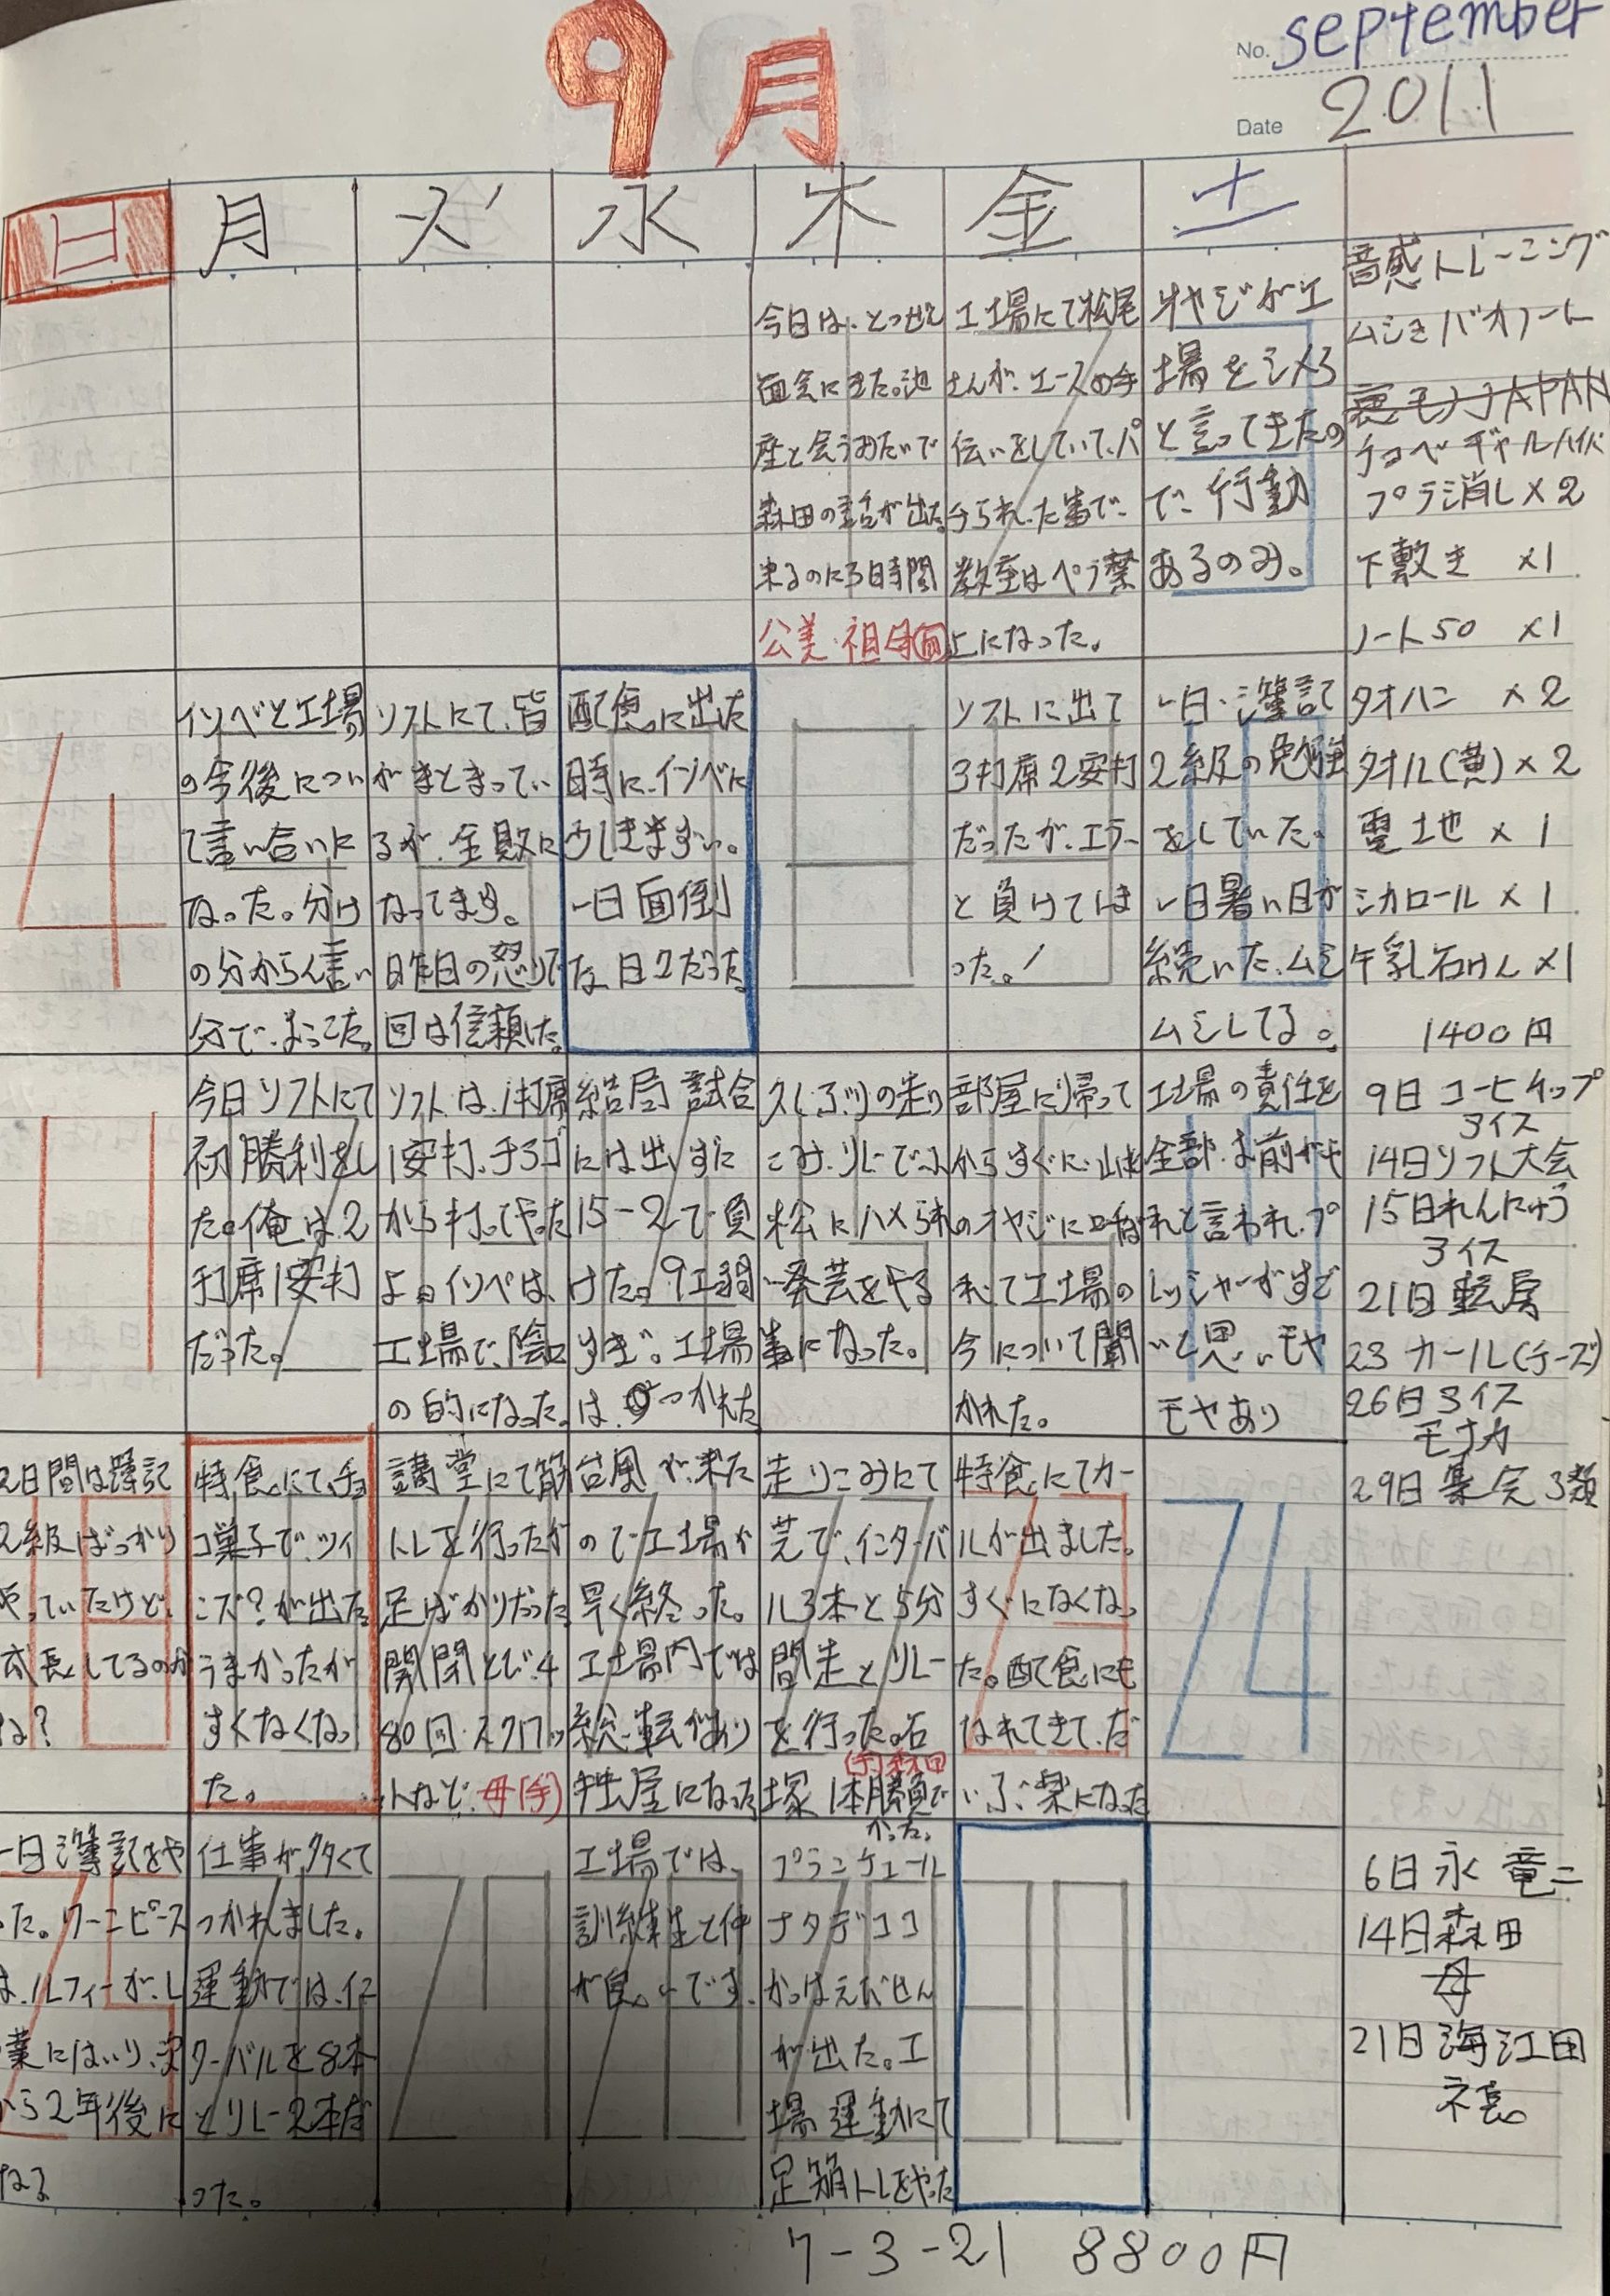 9月
No. September
Date 2011
日 月 火 水 木 金 土
今日は、とつぜん
面会にきた。池
座と会うみたいで
森田の話が出た。
来るのに3時間
公美・祖母面
工場にて松尾
さんが、エースの手
伝いをしていて、パ
クられた事で、
教室はペラ禁
止になった。
オヤジが工
場をシメろ
と言ってきたの
で、行動
あるのみ。
音感トレーニング
下敷き ×1
プラ消し×2
ノート50 ×1
4
インベと工場
の今後につい
て言い合いに
なった。分け
の分からん言い
分で、まいった。
ソフトにて、皆
がまとまってい
るが、全敗に
なってます。
昨日の怒りで
回は信頼した。
配慮に出た
時に、インベに
少しきまずい。
一日面倒
な日々だった。
8
ソフトに出て
3打席2安打
だったが、エラー
と負けてしま
った。!
一日、簿記
2級の勉強
をしていた。
一日暑い日が
続いた、ムシ
ムシしてる。
タオハン ×2
タオル(黄)×2
電池 ×1
シカロール×1
牛乳石けん×1
1400円
11
今日ソフトにて
初勝利をし
た。俺は2
打席1安打
だった。
ソフトは、1打席
1安打、チョゴ
から打ってやった
よ。インペは、
工場で、陰口
の的になった。
結局試合
には出ずに
15-2で負
けた。9工弱
すぎ。工場
は つかれた
久しぶりの走り
こみ、リレーで小
松にハメられ
一発芸をやる
事になった。
部屋に帰って
からすぐに、山本
のオヤジに呼ば
れて工場の
今について聞
かれた。
工場の責任を
全部、お前がも
れと言われ、プ
レッシャーがすご
いと思い、モヤ
モヤあり
9日 コーヒーチップ
アイス
14日ソフト大会
15日れんにゅう
アイス
21日転房
23 カール(チーズ)
26日アイス
モナカ
29日集会3類
18
2日間は簿記
2級ばっかり
やっていたけど、
成長してるのか
な?
特食にて、チョ
コ菓子で、ツイ
ニズ?が出た。
うまかったが
すくなくなっ
た。
講堂にて筋
トレを行ったが
足ばかりだった
開閉とび、4
80回・スクワッ
トなど 母(手)
台風が来た
ので工場が
早く終った。
工場内では
総転催あり
独居になった
走りこみにて
芝で、インターバ
ル3本と5分
間走とリレー
を行った。石
(手)森田
塚 1本勝負で
かった。
特食にてカー
ルが出ました。
すぐになくなっ
た。配食にも
なれてきて、だ
いぶ、楽になった
24
25
一日簿記をや
った。ワーニピース
は、ルフィーが、し
業にはいり、
から2年後に
なる
仕事が多くて
つかれました。
運動では、イン
ターバルを8本
とリレー2本だ
った。
27
工場では、
訓練生と仲
が良いです。
プランチュール
ナタデココ
かっぱえびせん
が出た。工
場運動にて
足筋トレをやった
30
6日永 竜二
14日森田
母
21日海江田
7-3-21 8800円